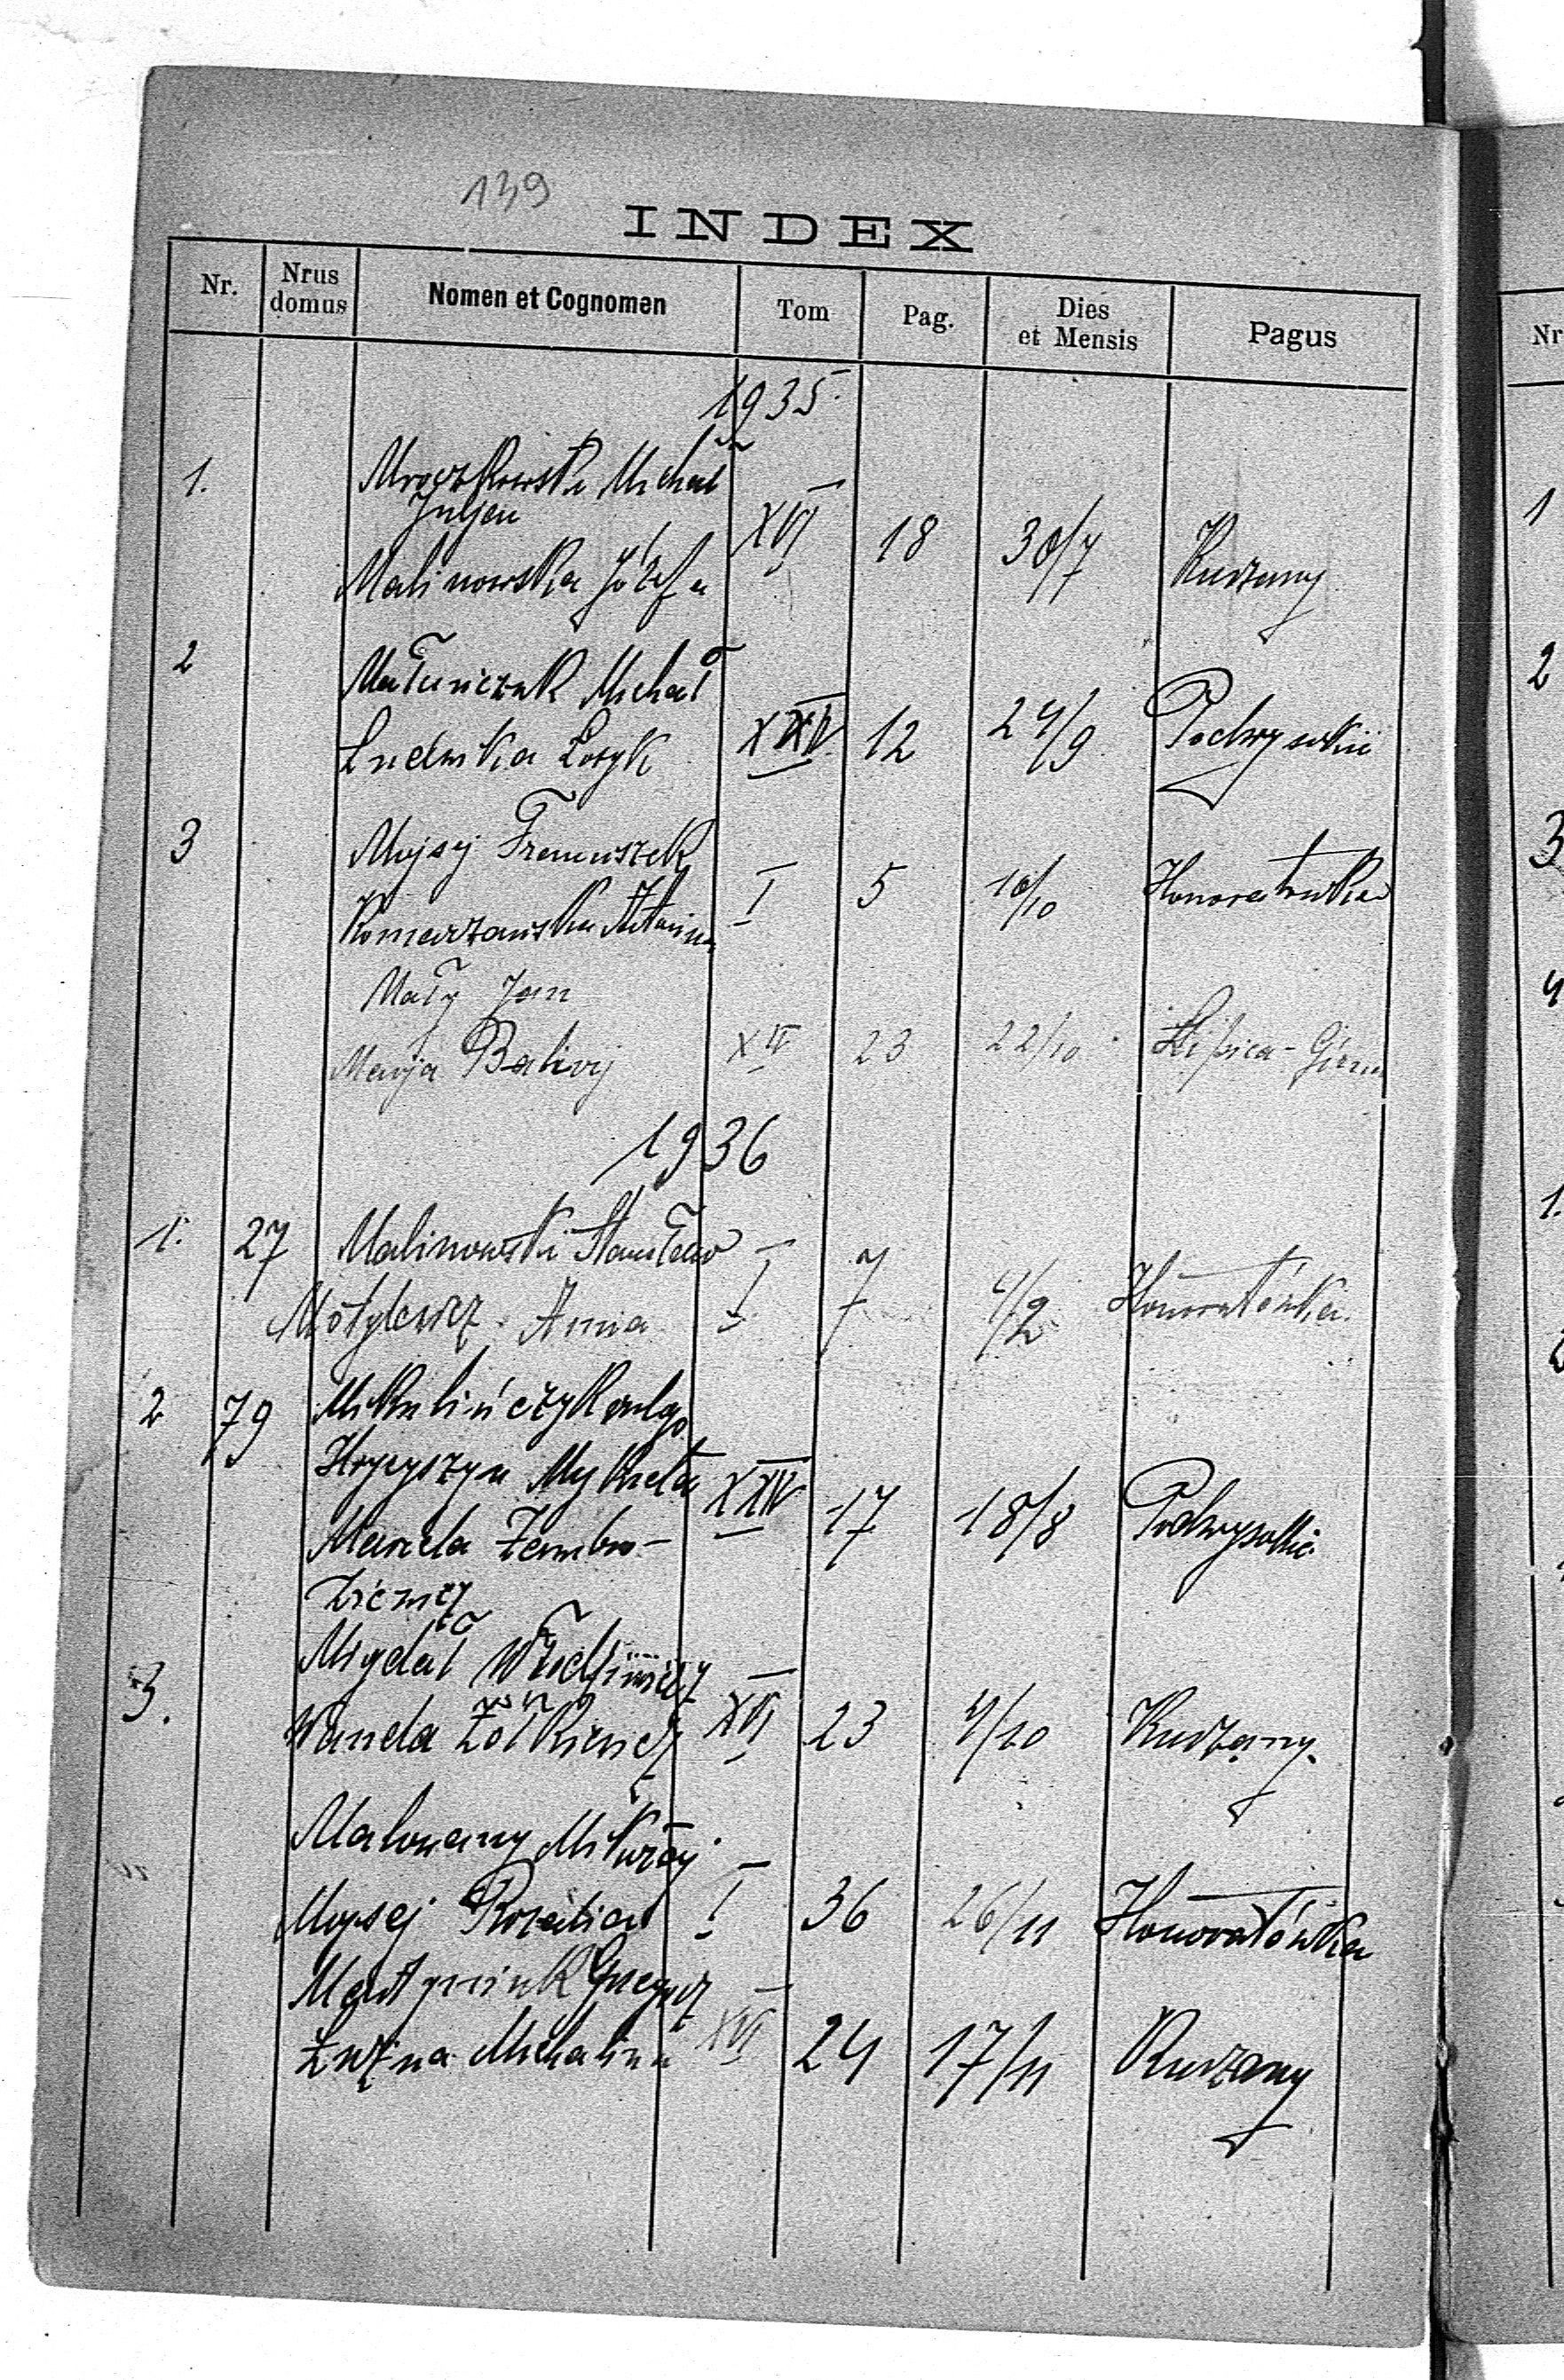 139
INDEX
Nr. Nrus domus Nomen et Cognomen Tom Pag. Dies et Mensis Pagus
1935
1. Mroczkowski Michał
Juljan
Malinowska Józefa XVI 18 30/7 Kurzany
2 Matuńczak Michał
Ludwika Łosyk XXIV 12 24/9 Podwysokie
3 Mojsej Franciszek
Komarzańska Antonina I 5 10/10 Honoratówka
Mały Jan
Marja Baliwij XIV 23 22/10 Lipica-Górna
1936
1. 27 Malinowski Stanisław
Motylewicz Anna I 7 4/2 Honoratówka
2 79 Mikulińczyk vulgo
Hrycyszyn Mykieta XXIV 17 18/8 Podwysokie
Wanda
3. Migdał Włodzimierz
Wanda Żółkiewicz XVI 23 4/10 Kurzany
Malowany Mikołaj
Mojsej Rozalia I 36 26/11 Honoratówka
Martyniuk Grzegorz
Michalina XVI 24 17/11 Kurzany
Nr
1
2
3
4
1.
2